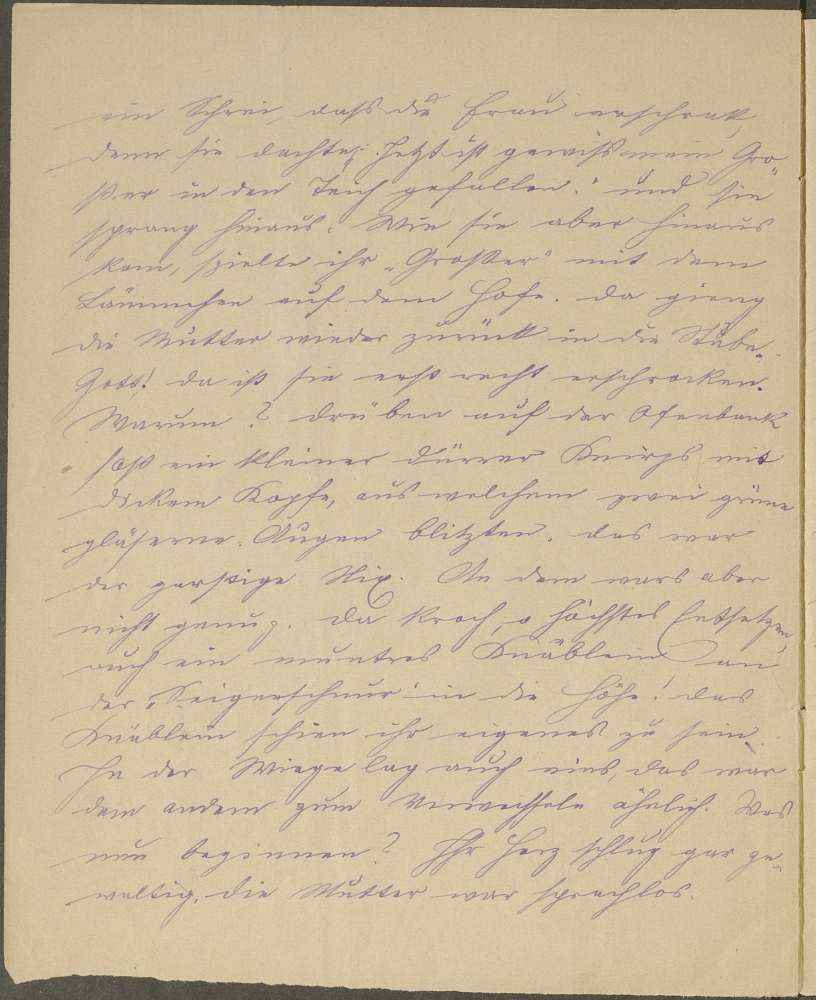 ein Schrei, dass die Frau erschrak,
denn sie dachte: „Jetzt ist gewiss mein Gro-
ßer in den Teich gefallen." und sie
sprang hinaus. Wie sie aber hinaus
kam, spielte ihr „Großer" mit dem
Lämmchen auf dem Hofe. Da gieng
die Mutter wieder zurück in die Stube.
Gott! da ist sie erst recht erschrocken.
Warum? Drüben auf der Ofenbank
saß ein kleiner dürrer Knirps mit
dickem Kopfe, aus welchem zwei grüne
gläserne Augen blitzten. Das war
der garstige Nix. An dem wars aber
nicht genug. Da kroch, o höchstes Entsetzen,
auch ein muntres Knäblein an
der „Seigerschnur" in die Höhe! Das
Knäblein schien ihr eigenes zu sein.
In der Wiege lag auch eins, das war
dem andern zum Verwechseln ähnlich. Was
nun beginnen? Ihr Herz schlug gar ge-
waltig, die Mutter war sprachlos.